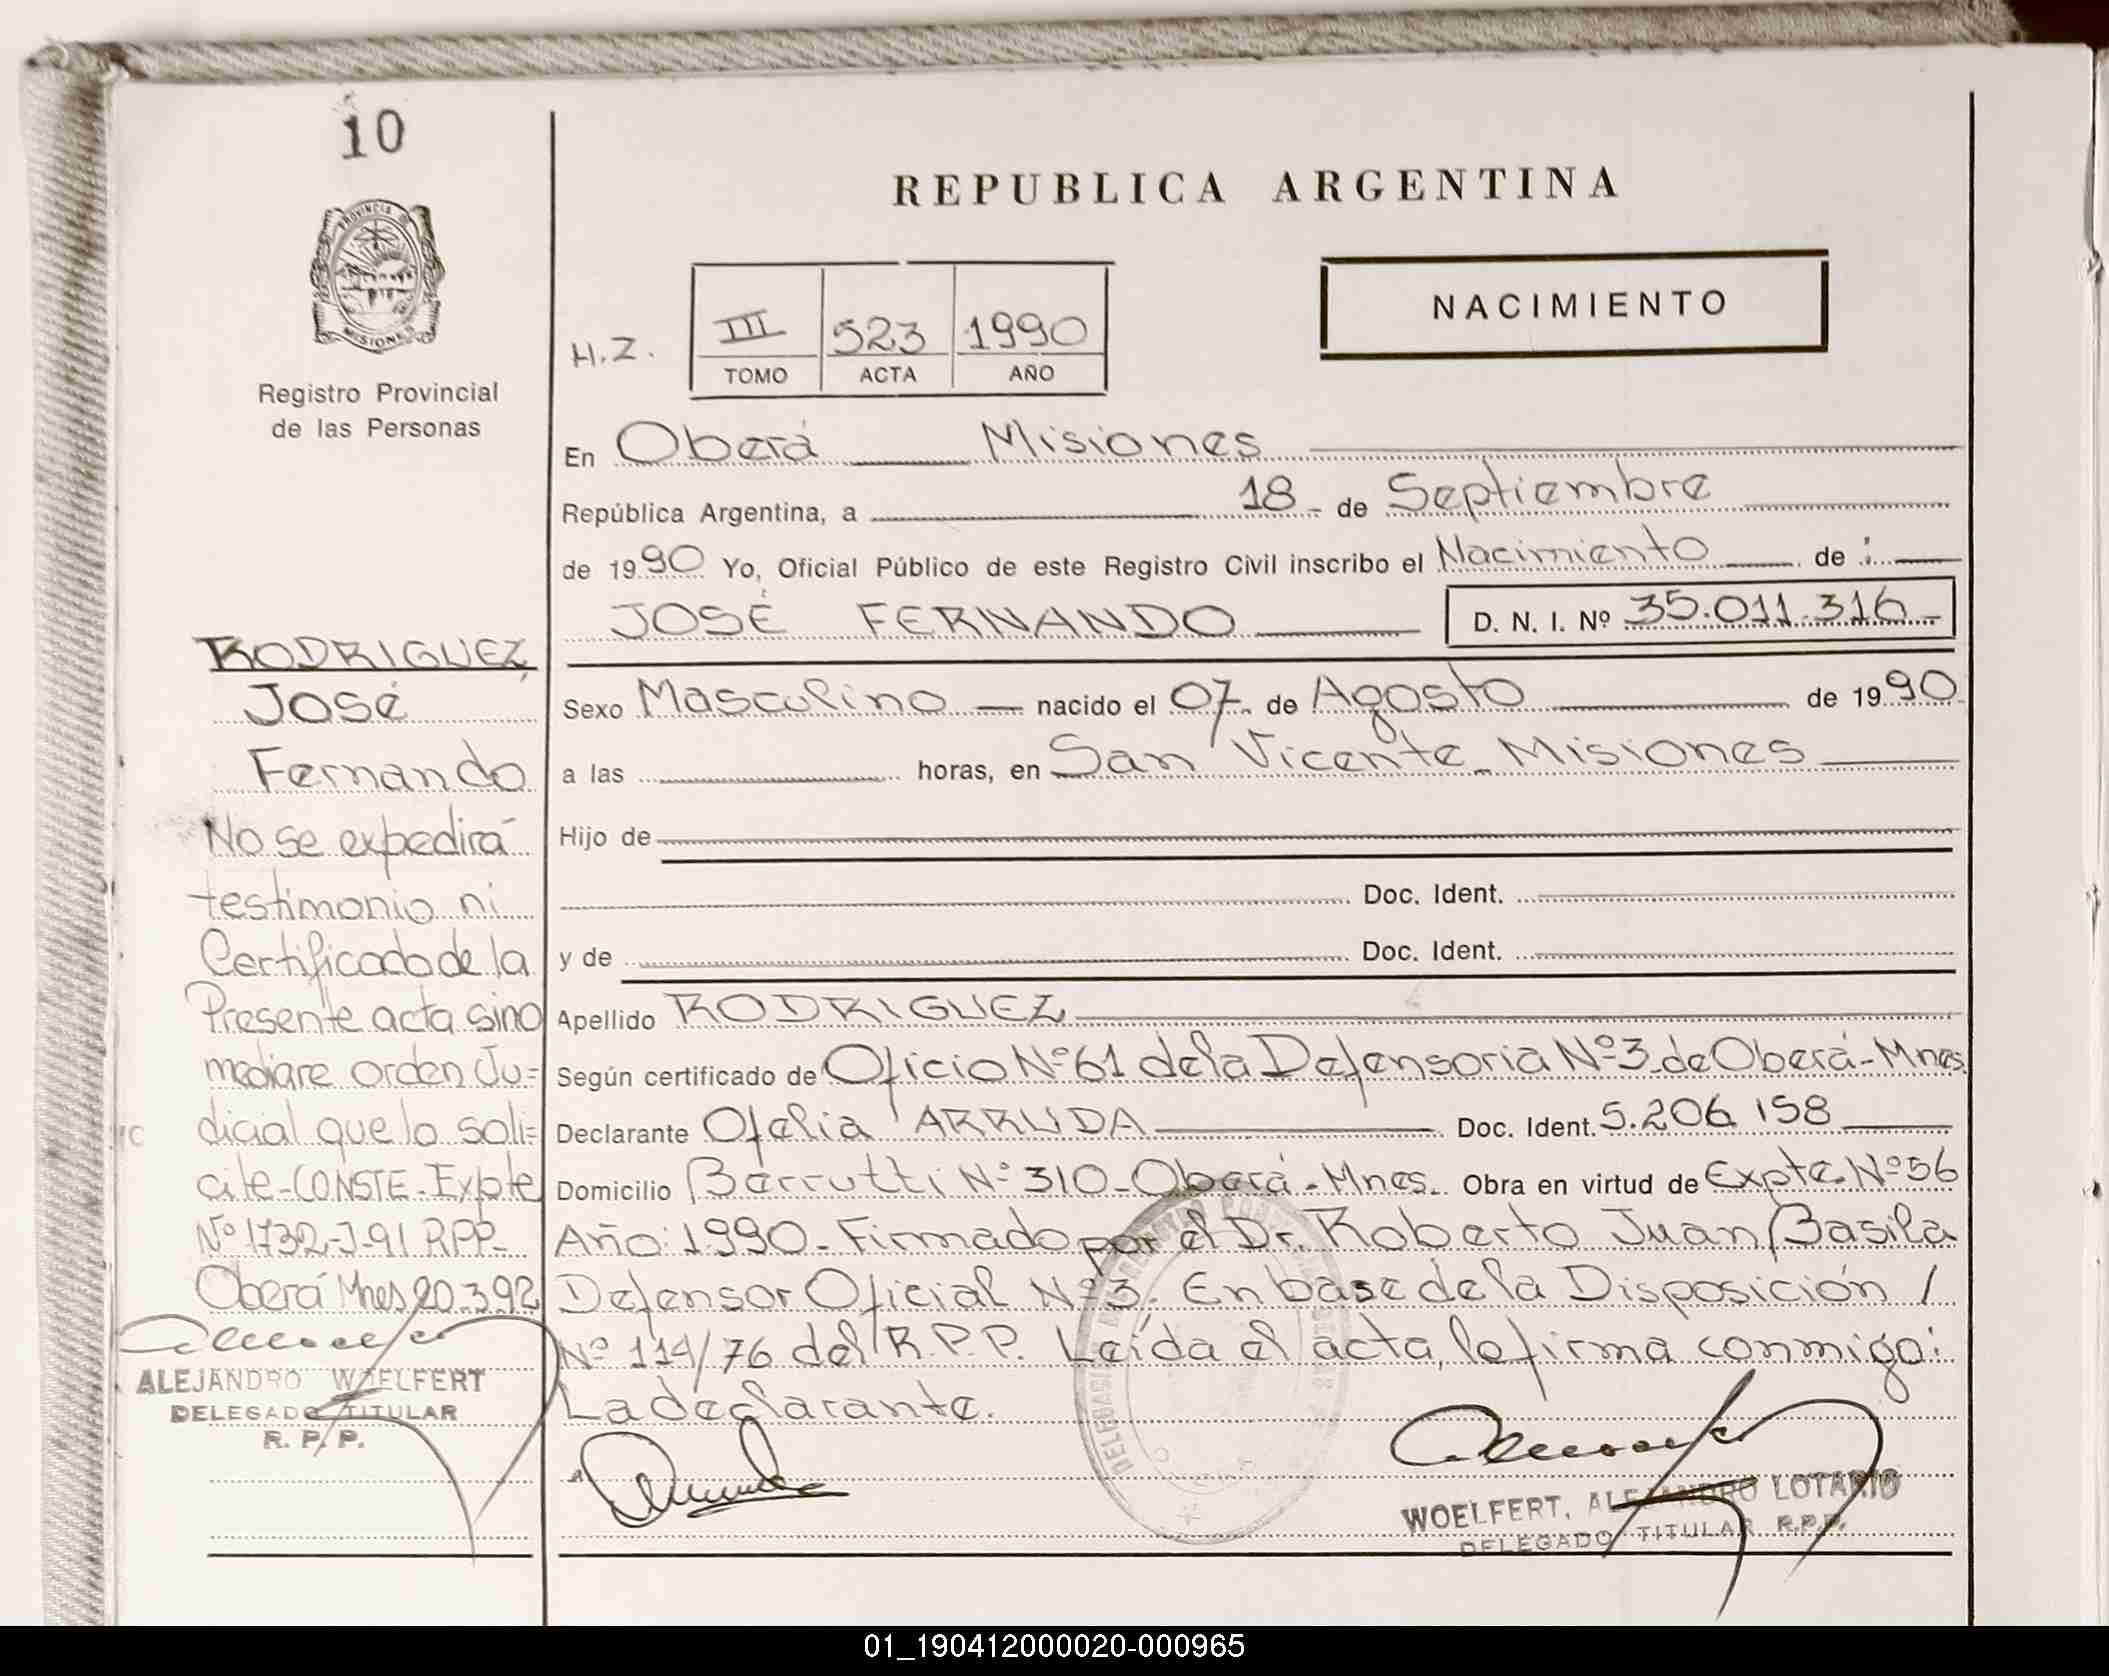 10
PROVINCIA D
MISIONES
Registro Provincial
de las Personas
REPUBLICA ARGENTINA
NACIMIENTO
H.Z.
III 523 1990
TOMO ACTA AÑO
En Oberá Misiones
República Argentina, a 18 de Septiembre
de 1990 Yo, Oficial Público de este Registro Civil inscribo el Nacimiento de :
JOSÉ FERNANDO D. N. I. Nº 35.011.316-
Sexo Masculino nacido el 07 de Agosto de 1990
a las horas, en San Vicente Misiones
Hijo de
Doc. Ident.
y de Doc. Ident.
Apellido RODRIGUEZ
Según certificado de Oficio Nº61 de la Defensoria Nº3 de Oberá-Mnes.
Declarante Ofelia ARRUDA Doc. Ident. 5.206.158
Domicilio Barrutti Nº 310-Oberá-Mnes. Obra en virtud de Expte Nº56
Año: 1990- Firmado por el Dr. Roberto Juan Basila
Defensor Oficial Nº3. En base de la Disposición /
Nº 114/76 del R.P.P. Leída el acta, la firma conmigo:
La declarante.
WOELFERT, ALEJANDRO LOTARIO
DELEGADO TITULAR R.P.P.
RODRIGUEZ,
José
Fernando
No se expedirá
testimonio ni
Certificado de la
Presente acta sino
mediare orden Ju=
dicial que lo soli=
cite-CONSTE-Expte
Nº 1732-J-91 RPP-
Oberá Mnes 20.3.92
ALEJANDRO WOELFERT
DELEGADO TITULAR
R. P. P.
01_190412000020-000965